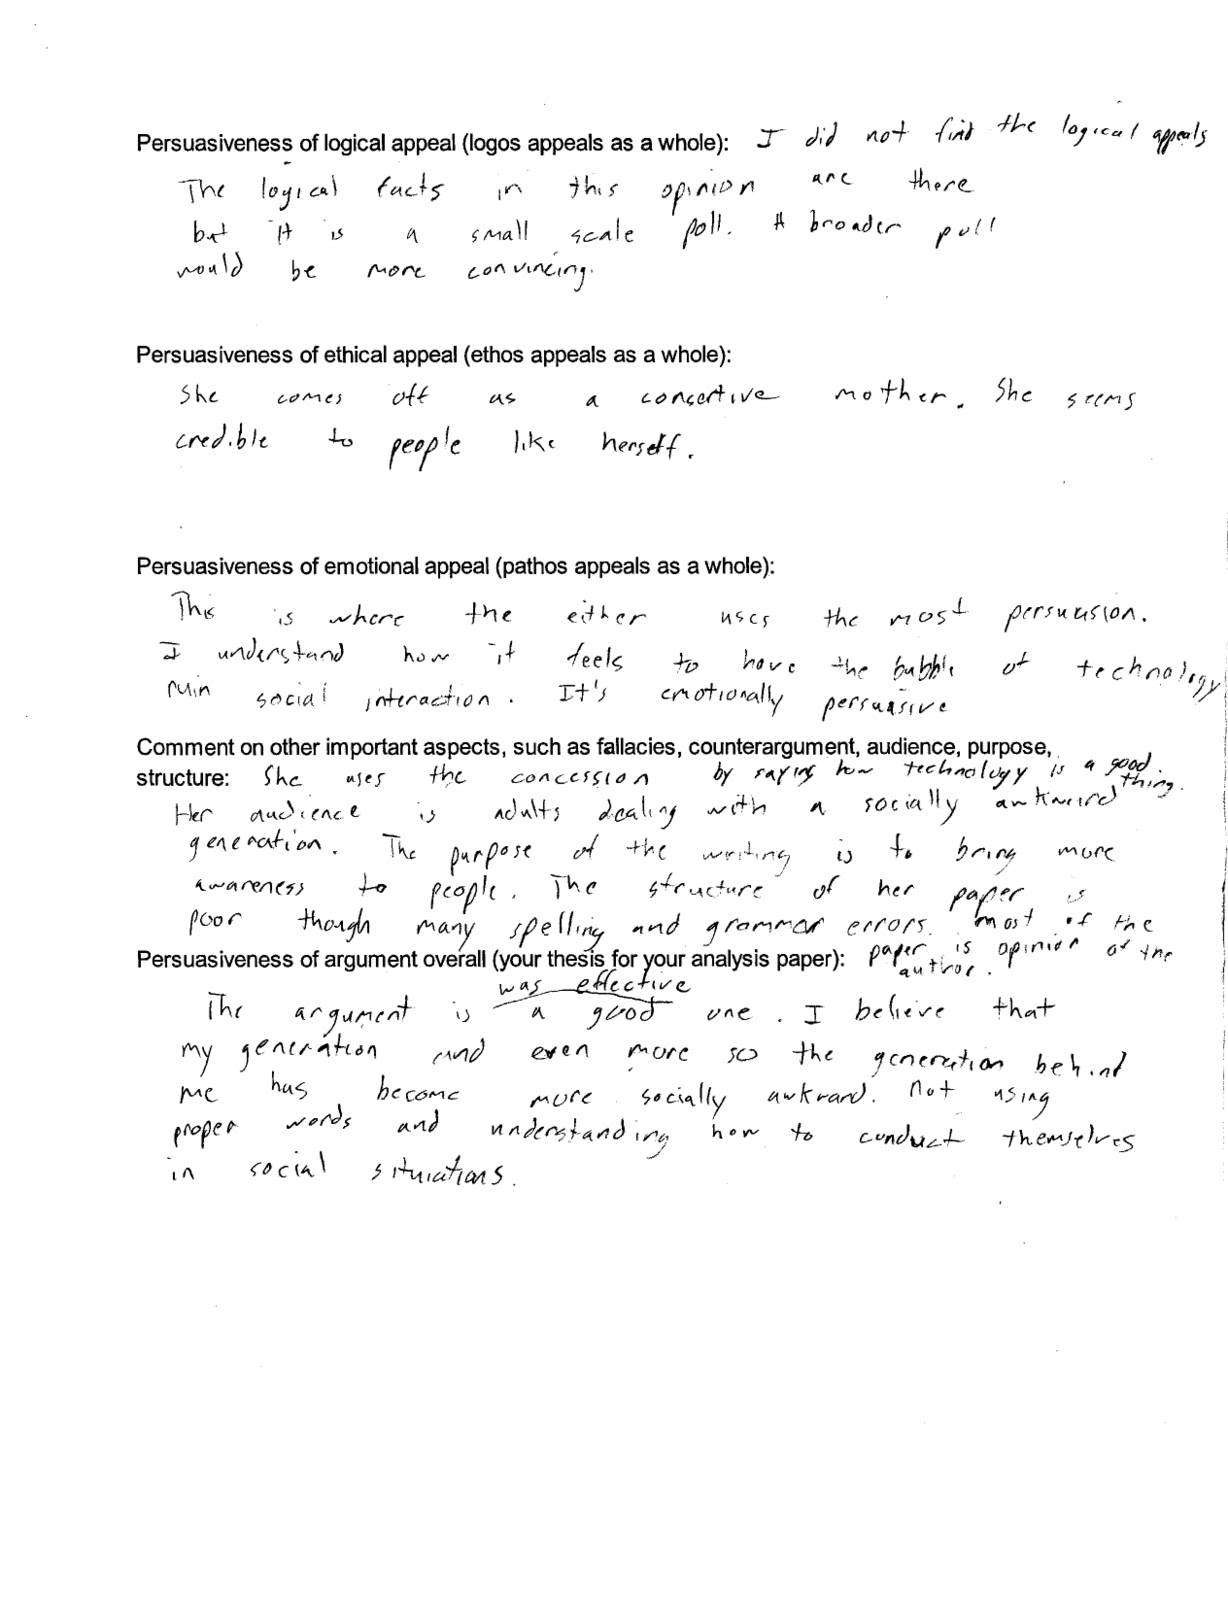 Persuasiveness of logical appeal (logos appeals as a whole): I did not find the logical appeals
The logical facts in this opinion are there
but it is a small scale poll. A broader poll
would be more convincing.
Persuasiveness of ethical appeal (ethos appeals as a whole):
She comes off as a mother. She seems
credible to people like herself.
Persuasiveness of emotional appeal (pathos appeals as a whole):
This is where the either uses the most persuasion.
I understand how it feels to have the bubble of technology
ruin social interaction. It's emotionally persuasive
Comment on other important aspects, such as fallacies, counterargument, audience, purpose,
structure: She uses the concession by saying how technology is a good thing.
Her audience is adults dealing with a socially awkward
generation. The purpose of the writing is to bring more
awareness to people. The structure of her paper is
poor though many spelling and grammar errors. most of the
Persuasiveness of argument overall (your thesis for your analysis paper): paper is opinion of the
author.
was effective
The argument is a good one. I believe that
my generation and even more so the generation behind
me has become more socially awkward. Not using
proper words and understanding how to conduct themselves
in social situations.